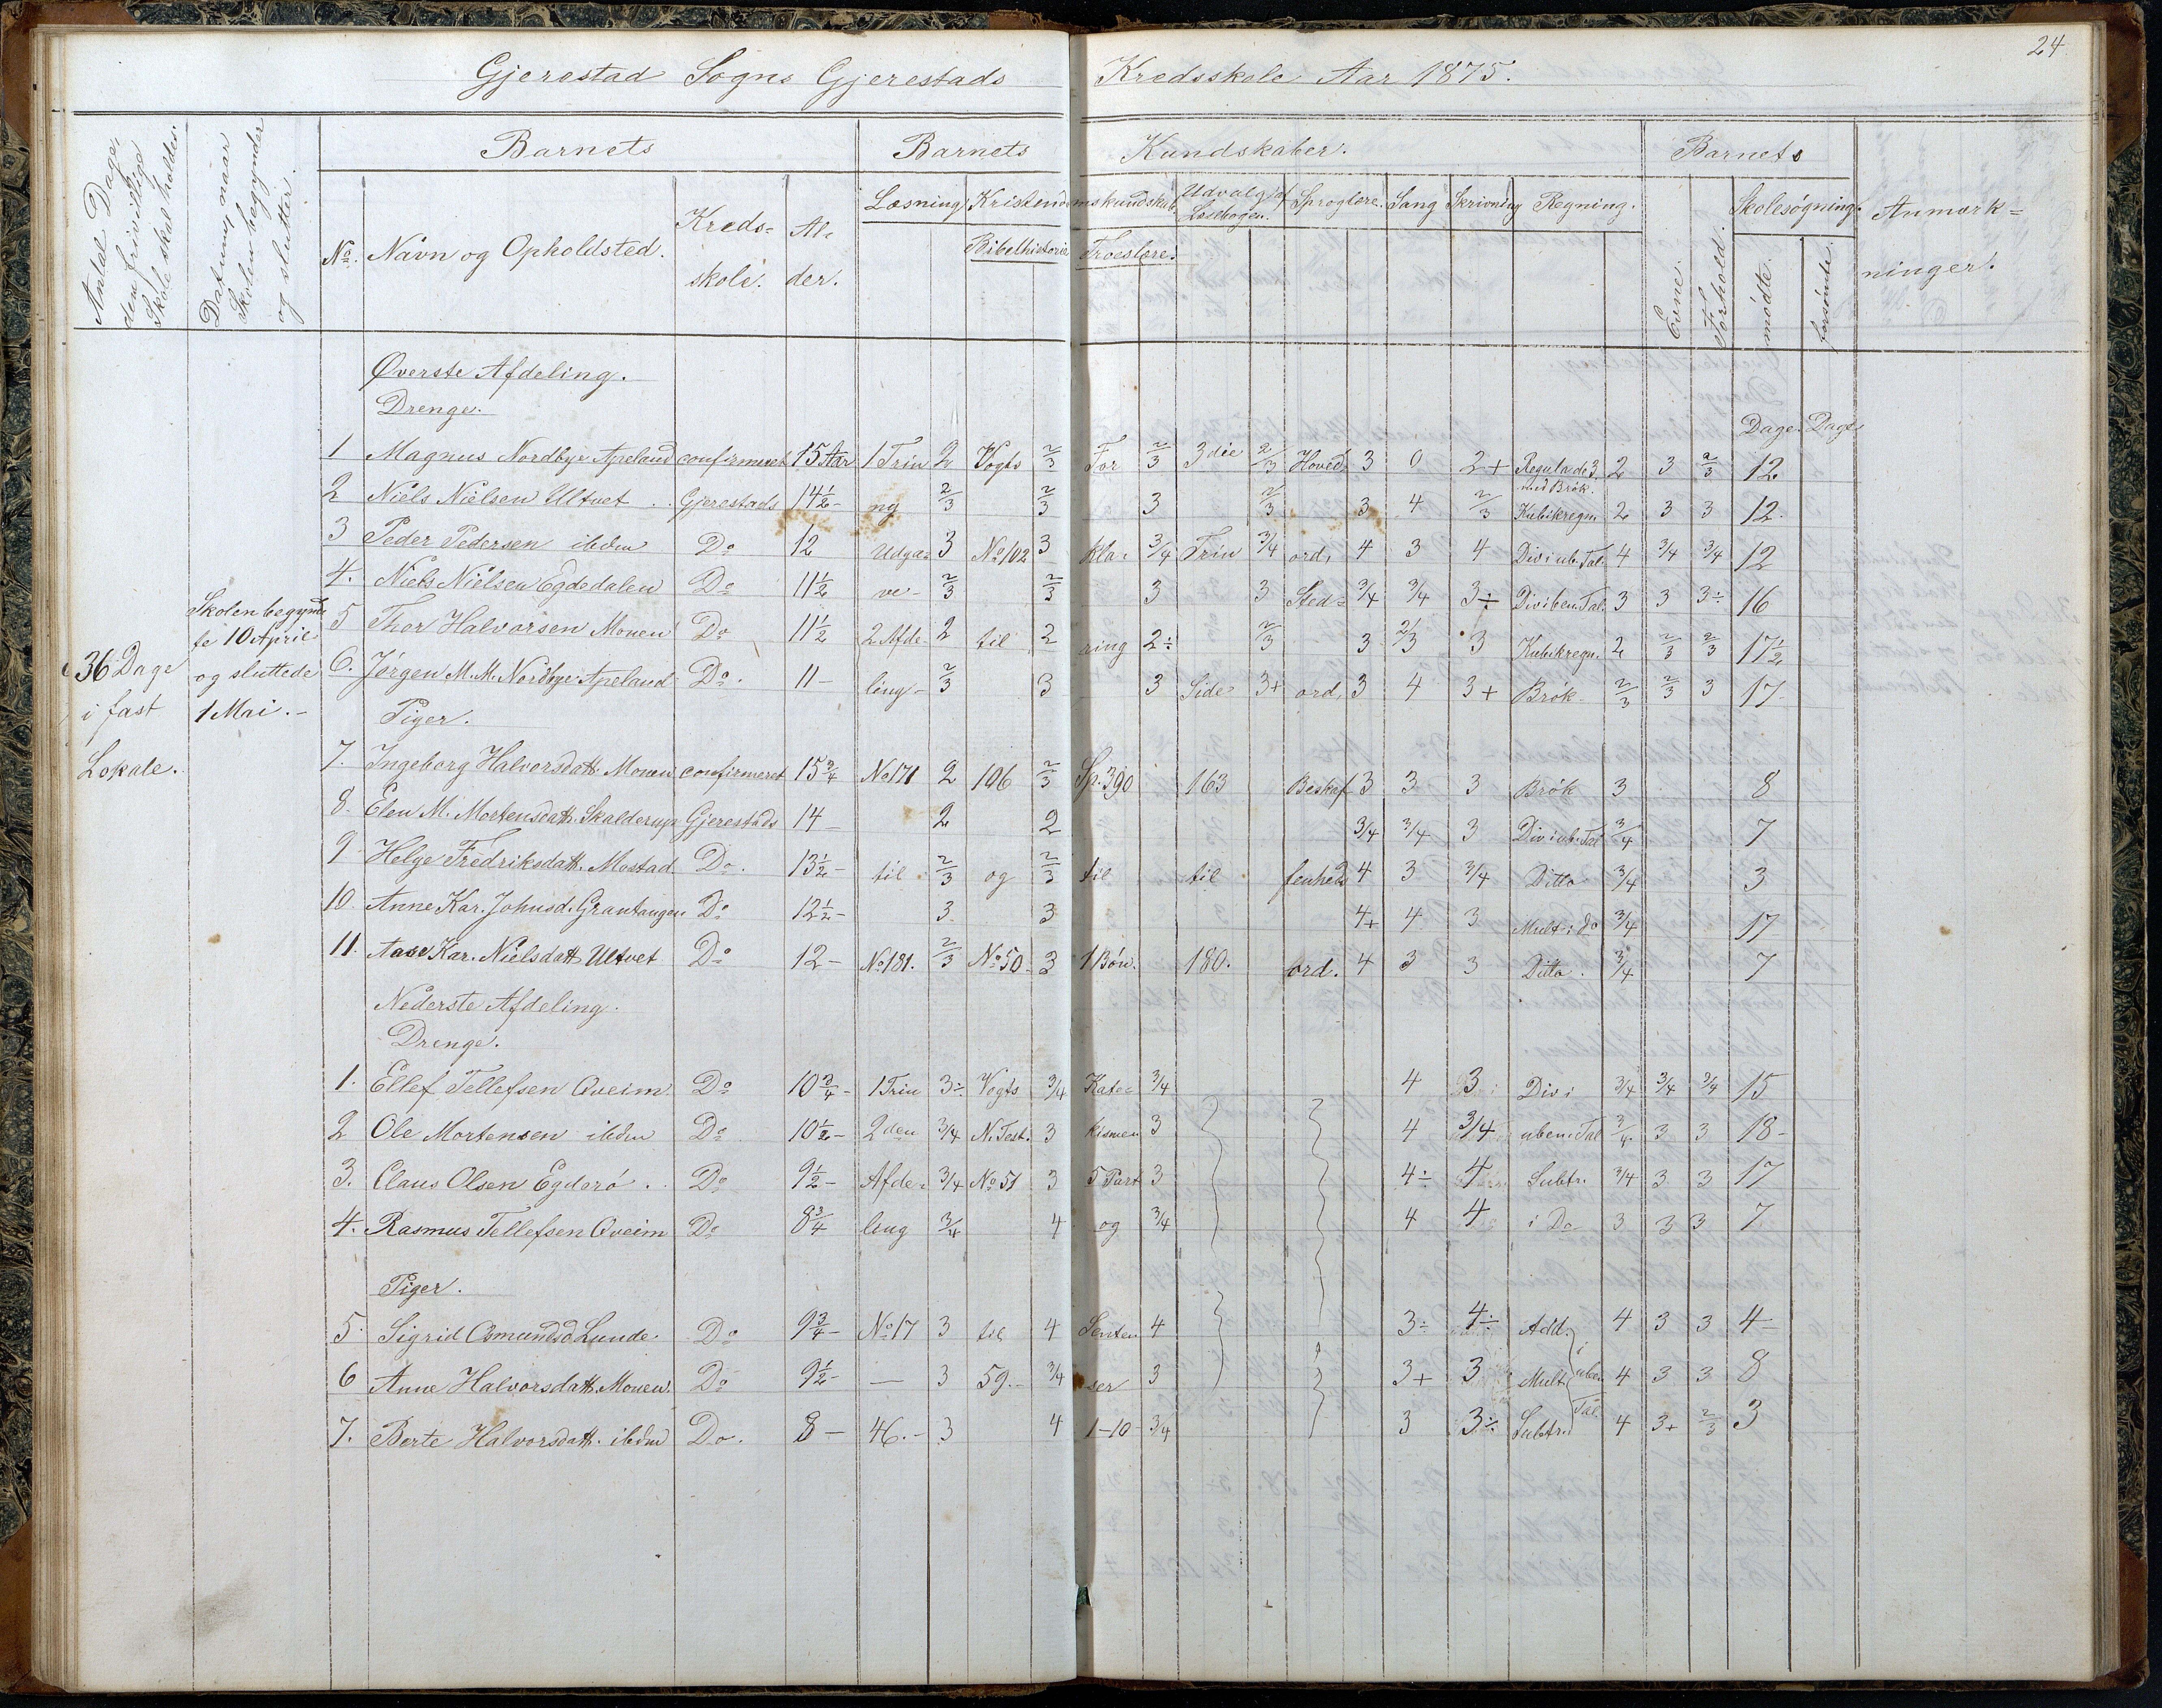 24
Gjerestad Sogns Gjerestads Kredsskole Aar 1875.
Antal Dage, den frivillige Skole skal holdes.
Datum, naar Skolen begynder og slutter.
Barnets
Barnets Kundskaber.
Barnets
Anmærk=
ninger.
No. Navn og Opholdsted. Kreds= skole. Al= der.
Læsning Kristendomskundskab. Udvalg af Læsebogen. Sproglære. Sang Skrivning Regning.
Bibelhistorie Troeslære.
Evne. Forhold. Skolesøgning.
mødte. forsømte.
Øverste Afdeling.
Drenge.
Dage. Dage
1 Magnus Nordbye Apeland confirmeret 15 Aar 1 Trin 2 Vogts 2/3 For 2/3 3die 2/3 Hoved= 3 0 2+ Regulade 3 med Brøk. 2 3 2/3 12
2 Niels Nielsen Ultvet Gjerestads 14½ - ny 2/3 2/3 3 2/3 3 4 2/3 Kubikregn. 2 3 3 12.
3 Peder Pedersen ibdm Do 12 Udga= 3 No 102 3 kla= 3/4 Trin 3/4 ord, 4 3 4 Div i ub. Tal. 4 3/4 3/4 12
4. Niels Nielsen Egdedalen Do 11½ ve- 2/3 2/3 3 3 Sted= 3/4 3/4 3÷ Div i ben. Tal. 3 3 3÷ 16
5 Thor Halvorsen Monen Do 11½ 2 Afde- 2 til 2 ring 2÷ 2/3 3 2/3 3 Kubikregn. 2 2/3 2/3 17½
6. Jørgen M. M. Nordbye Apeland Do. 11 - ling- 2/3 3 3 Side 3+ ord, 3 4 3+ Brøk- 2/3 2/3 3 17-
36 Dage
i fast
Lokale.
Skolen begynd
te 10 April
og sluttede
1 Mai. -
Piger.
7. Ingeborg Halvorsdatt. Monen confirmeret 15¾ No 171 2 106 2/3 Sp. 390 163 Beskaf 3 3 3 Brøk 3 8
8. Elen M. Mortensdatt. Skalderup Gjerestads 14 - 2 2 3/4 3/4 3 Div i ub. Tal 3/4 7
9 Helge Fredriksdatt. Mostad. Do. 13½ - til 2/3 og 2/3 til til fenheds 4 3 3/4 Ditto 3/4 3
10. Anne Kar. Johnsd. Grantangen Do 12½ - 3. 3 4+ 4 3 Mult. i do 3/4 17
11. Aase Kar. Nielsdatt Ultvet Do 12 - No 181. 2/3 No 50. 3 1 Bøn. 180. ord. 4 3 3 Ditto. 3/4 7
Nederste Afdeling.
Drenge.
1. Ellef Tellefsen Qveim Do 10¾ - 1 Trin 3÷ Vogts 3/4 Kate= 3/4 4 3 Div i 3/4 3/4 3/4 15
2 Ole Mortensen ibdm Do 10½ - 2den 3/4 N. Test. 3 kismen 3 4 3/4 uben. Tal 3/4. 3 3 18-
3. Claus Olsen Egderø. Do 9½ - Afde= 3/4 No 51 3 5 Part 3 4÷ 4 Subtr. 3/4 3 3 17
4. Rasmus Tellefsen Qveim Do 8¾ ling 3/4 4 og 3/4 4 4 i Do 3 3 3 7
Piger.
5. Sigrid Osmundsd Lunde. Do 9¾ - No 17 3 til 4 Senten 4 3÷ 4÷ Add. 4 3 3 4-
6 Anne Halvorsdatt. Monen. Do 9½ - — 3 59.- 3/4 ser 3 3+ 3 Mult. i uben 4 3 3 8
7. Berte Halvorsdatt. ibdm Do. 8 - 46.- 3 4 1-10- 3/4 3 3÷ Subtr. Tal 4 3+ 2/3 3